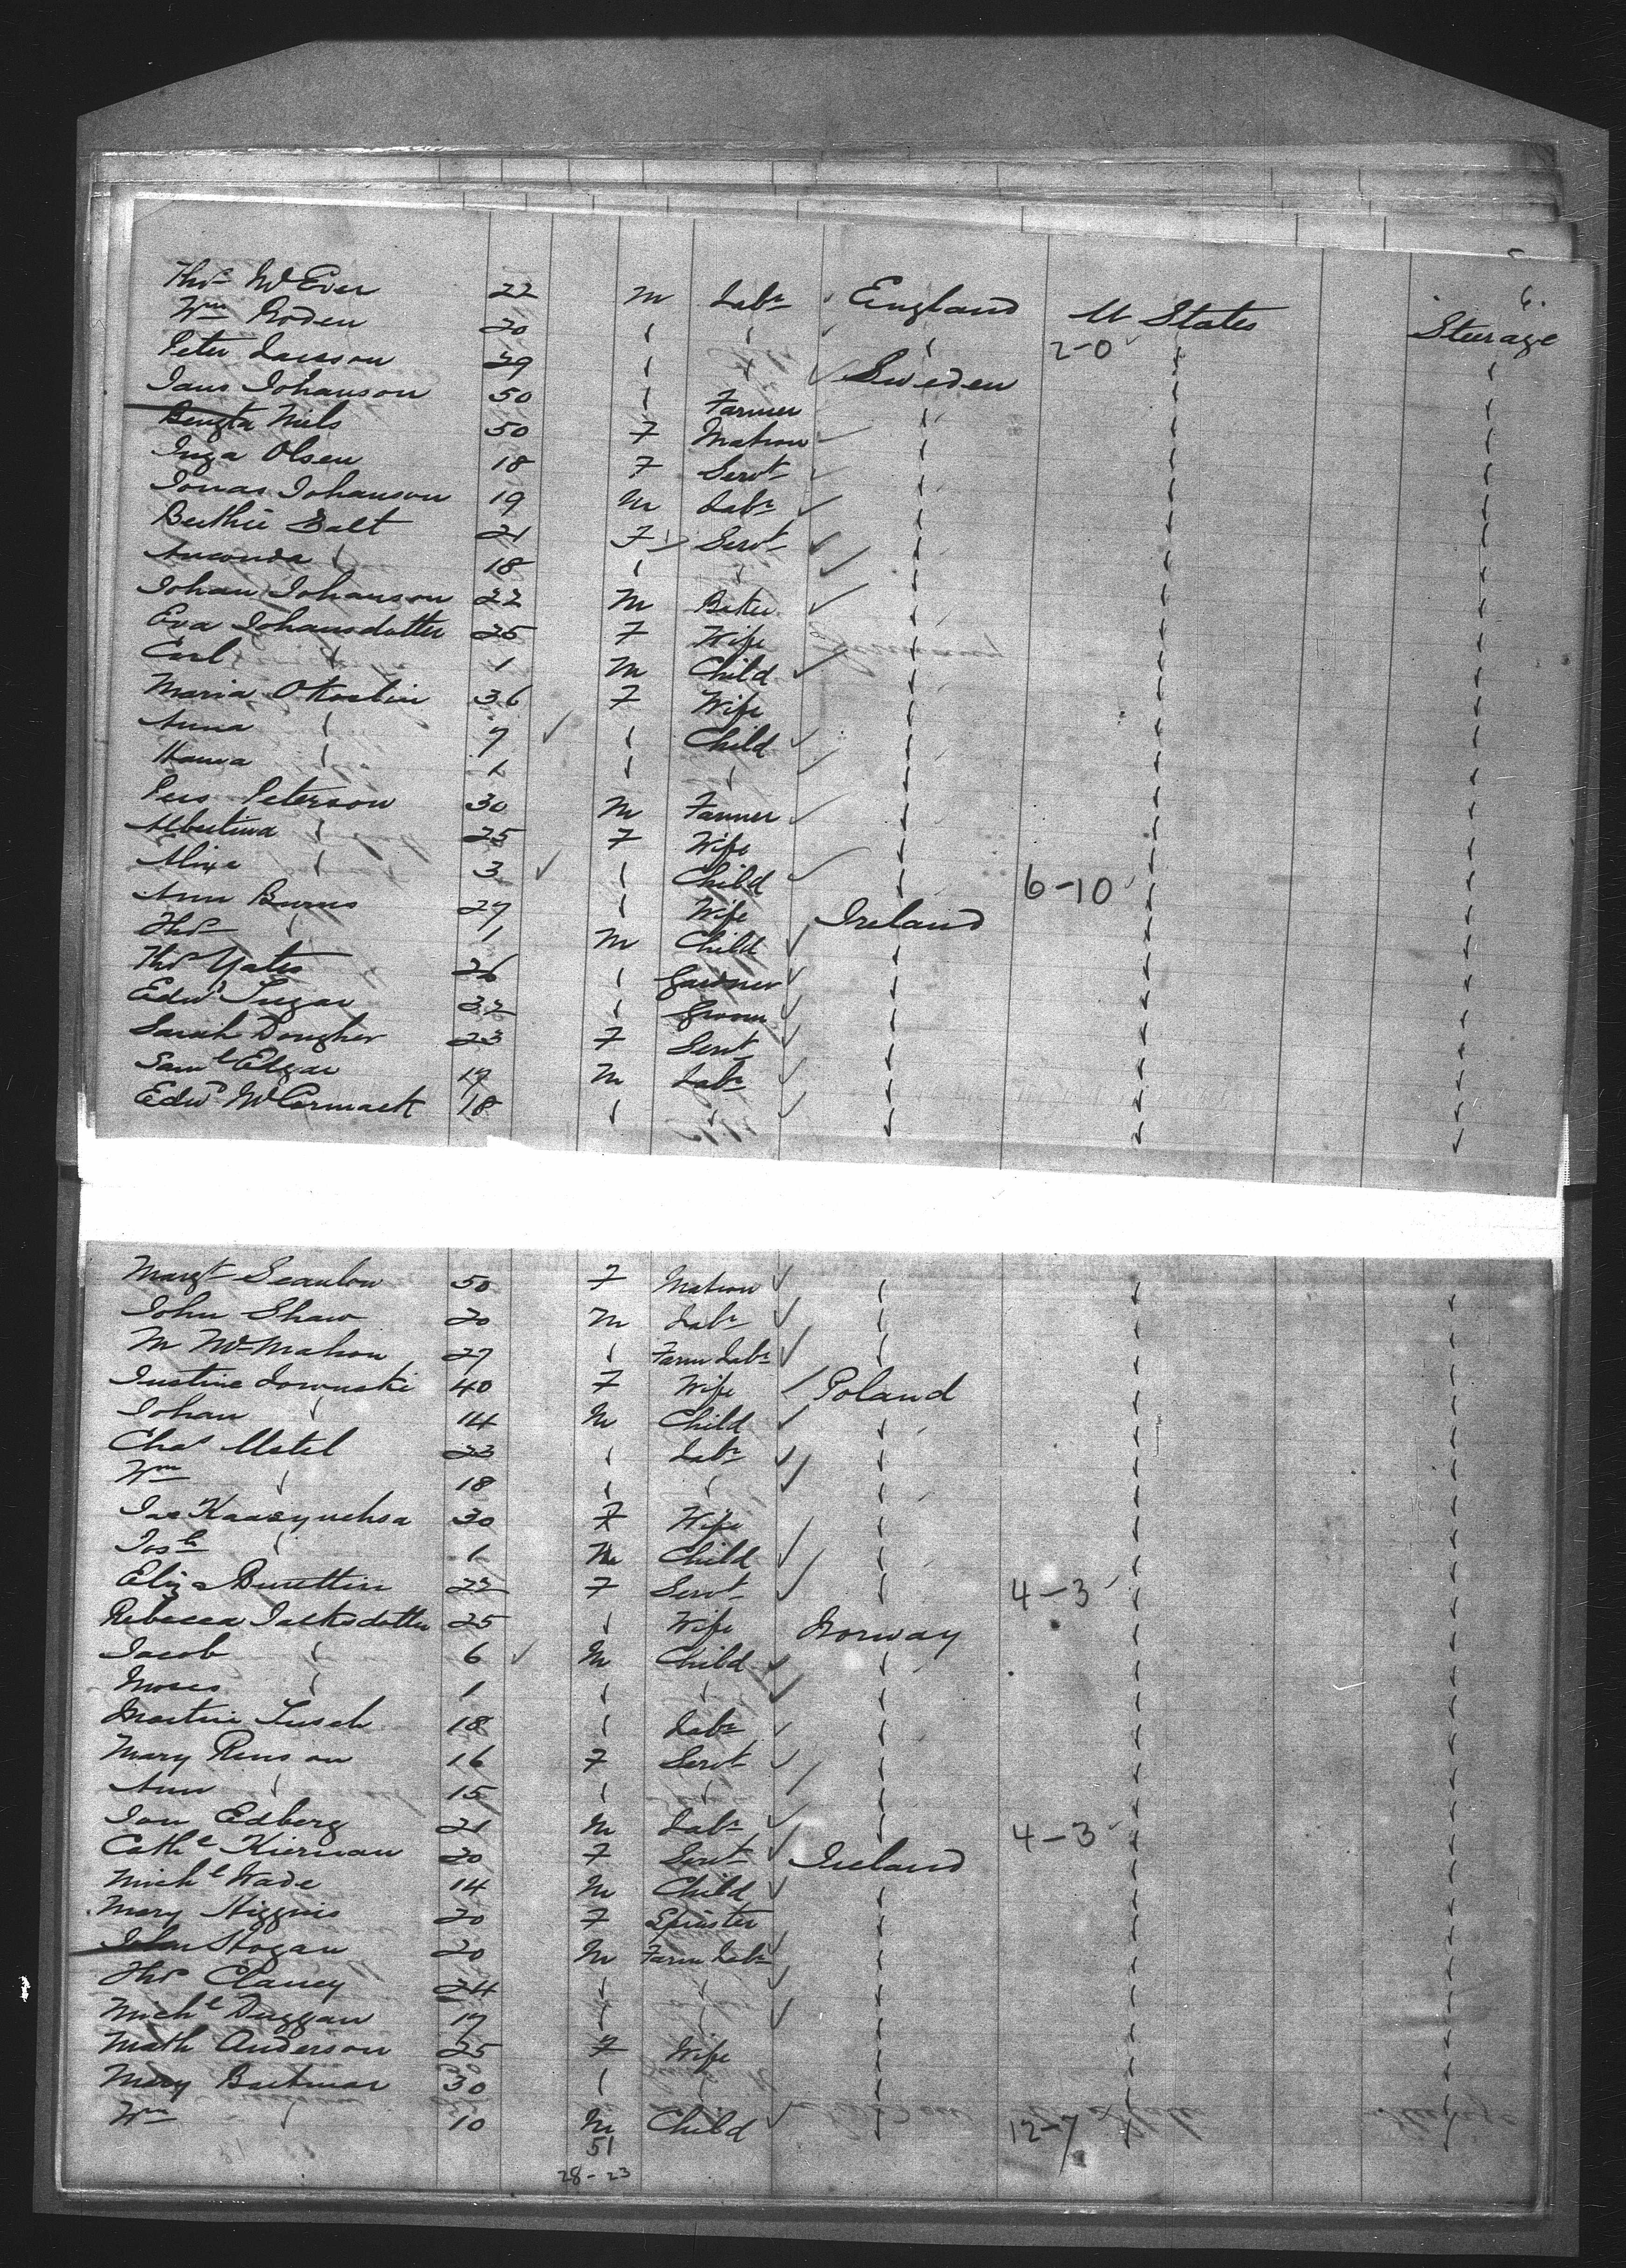 6.
Thos McEver 22 M Labr England U States Steerage
Wm Roden 20 " " " 2-0 " "
Peter Larsson 29 " " Sweden " "
Jans Johanson 50 " Farmer " " "
Bengta Nils 50 F Matron " " "
Inga Olsen 18 F Servt " " "
Jonas Johanson 19 M Labr " " "
Salt 21 F Servt " " "
Amanda " 18 " " " " "
Johan Johanson 22 M Baker " " "
Eva Johansdotter 25 F Wife " " "
Carl " 1 M Child " " "
Maria 36 F Wife " " "
Anna " 7 " Child " " "
Hanna " 1 " " " " "
Pers Peterson 30 M Farmer " " "
Albertina " 25 F Wife " " "
" 3 " Child " 6-10 " "
Ann Burns 27 " Wife Ireland " "
Thos " 1 M Child " " "
Thos Yates 26 " Gardner " " "
Edwd 32 " Groom " " "
Sarah Dougher 23 F Servt " " "
Saml Edgar 17 M Labr " " "
Edwd McCormack 18 " " " " "
Margt Scanlon 50 F Matron " " "
John Shaw 20 M Labr " " "
M McMahon 27 " Farm Labr " " "
Justine 40 F Wife Poland " "
Johan " 14 M Child " " "
Chas 23 " Labr " " "
Wm " 18 " " " " "
30 F Wife " " "
Josh " 1 M Child " " "
Eliz 22 F Servt " 4-3 " "
Rebecca 25 " Wife Norway " "
Jacob " 6 M Child " " "
Moses " 1 " " " " "
Martin 18 " Labr " " "
Mary 16 F Servt " " "
Ann " 15 " " " " "
Jon Edberg 21 M Labr " 4-3 " "
Cathe Kiernan 20 F Servt Ireland " "
Michl Wade 14 M Child " " "
Mary Higgins 20 F Spinster " " "
John Hogan 20 M Farm Labr " " "
Thos Clancy 24 " " " " "
Michl Duggan 17 " " " " "
Math Anderson 25 F Wife " " "
Mary 30 " " " " "
Wm " 10 M Child " 12-7 " "
51
28-23